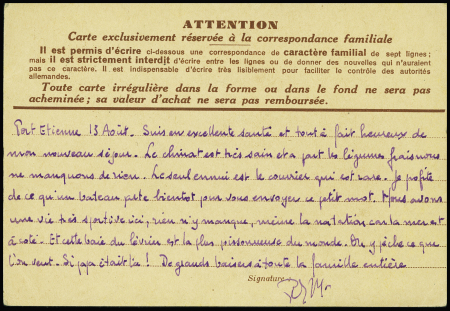 ATTENTION
Carte exclusivement réservée à la correspondance familiale
Il est permis d'écrire ci-dessous une correspondance de caractère familial de sept lignes;
mais il est strictement interdit d'écrire entre les lignes ou de donner des nouvelles qui n'auraient
pas ce caractère. Il est indispensable d'écrire très lisiblement pour faciliter le contrôle des autorités
allemandes.
Toute carte irrégulière dans la forme ou dans le fond ne sera pas
acheminée; sa valeur d'achat ne sera pas remboursée.
Port Etienne 15 Août. Suis en excellente santé et tout à fait heureux de
mon nouveau séjour. Le climat est très sain et a part les légumes frais nous
ne manquons de rien. Le seul ennui est le courrier qui est rare. Je profite
de ce qu'un bateau parte bientot pour vous envoyer ce petit mot. Nous avons
une vie très sportive ici, rien n'y manque, même la natation car la mer est
à coté. Et cette baie du lévrier est la plus poissonneuse du monde. On y pêche ce que
l'on veut. Si papa était là! De grands baisers à toute la famille entière
Signature